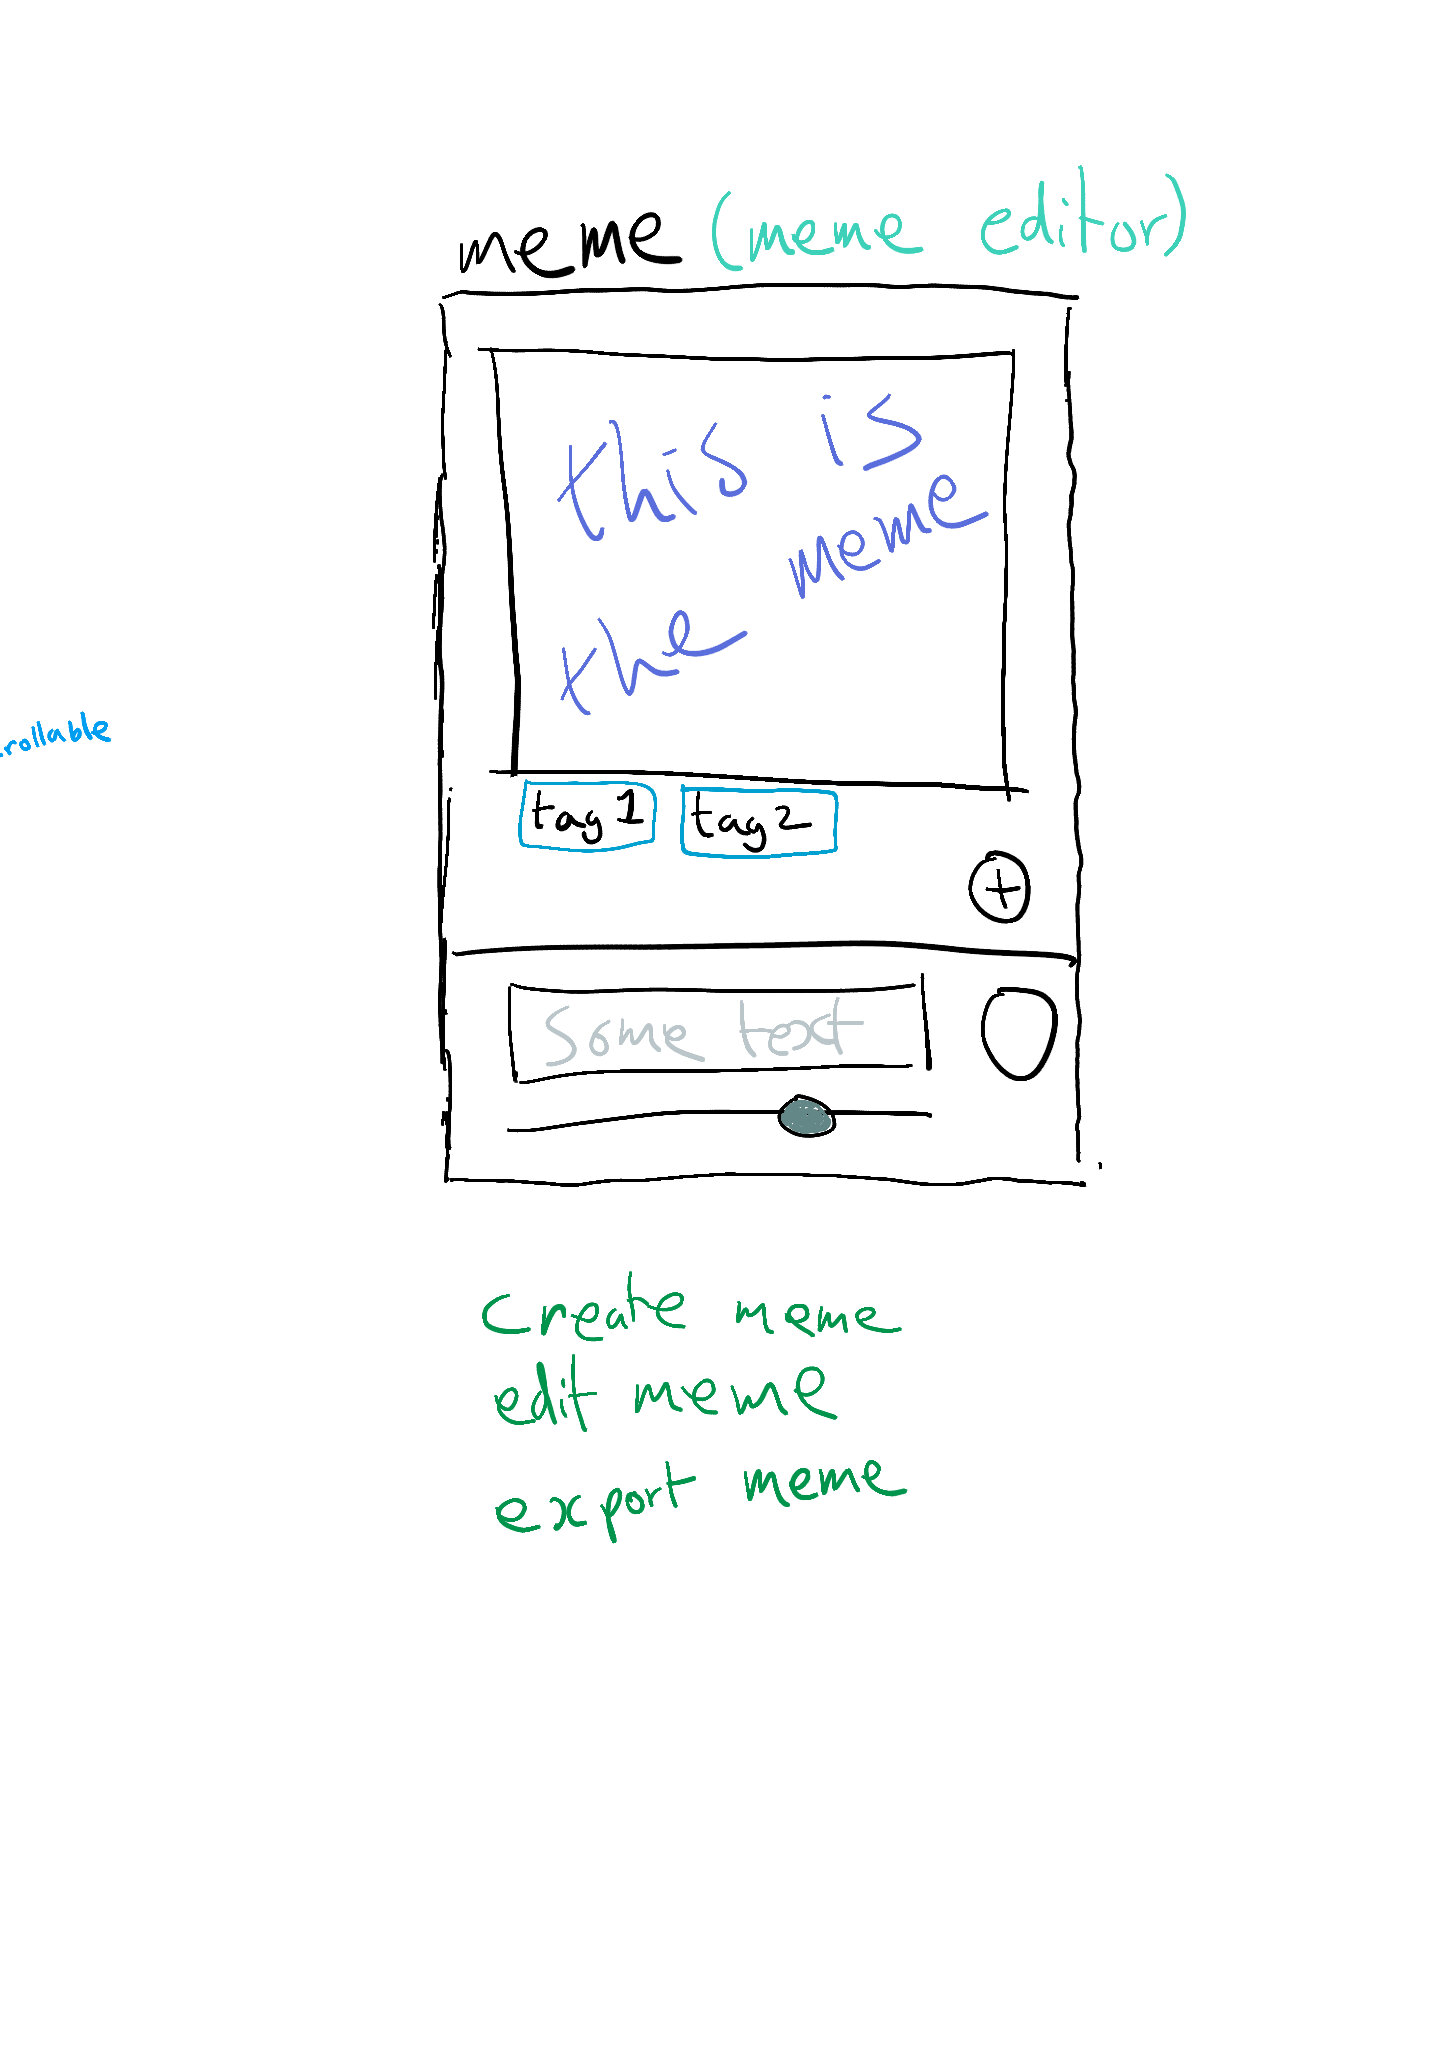 meme (meme editor)
this is
the meme
rollable
tag 1 tag 2
+
Some text
Create meme
edit meme
export meme